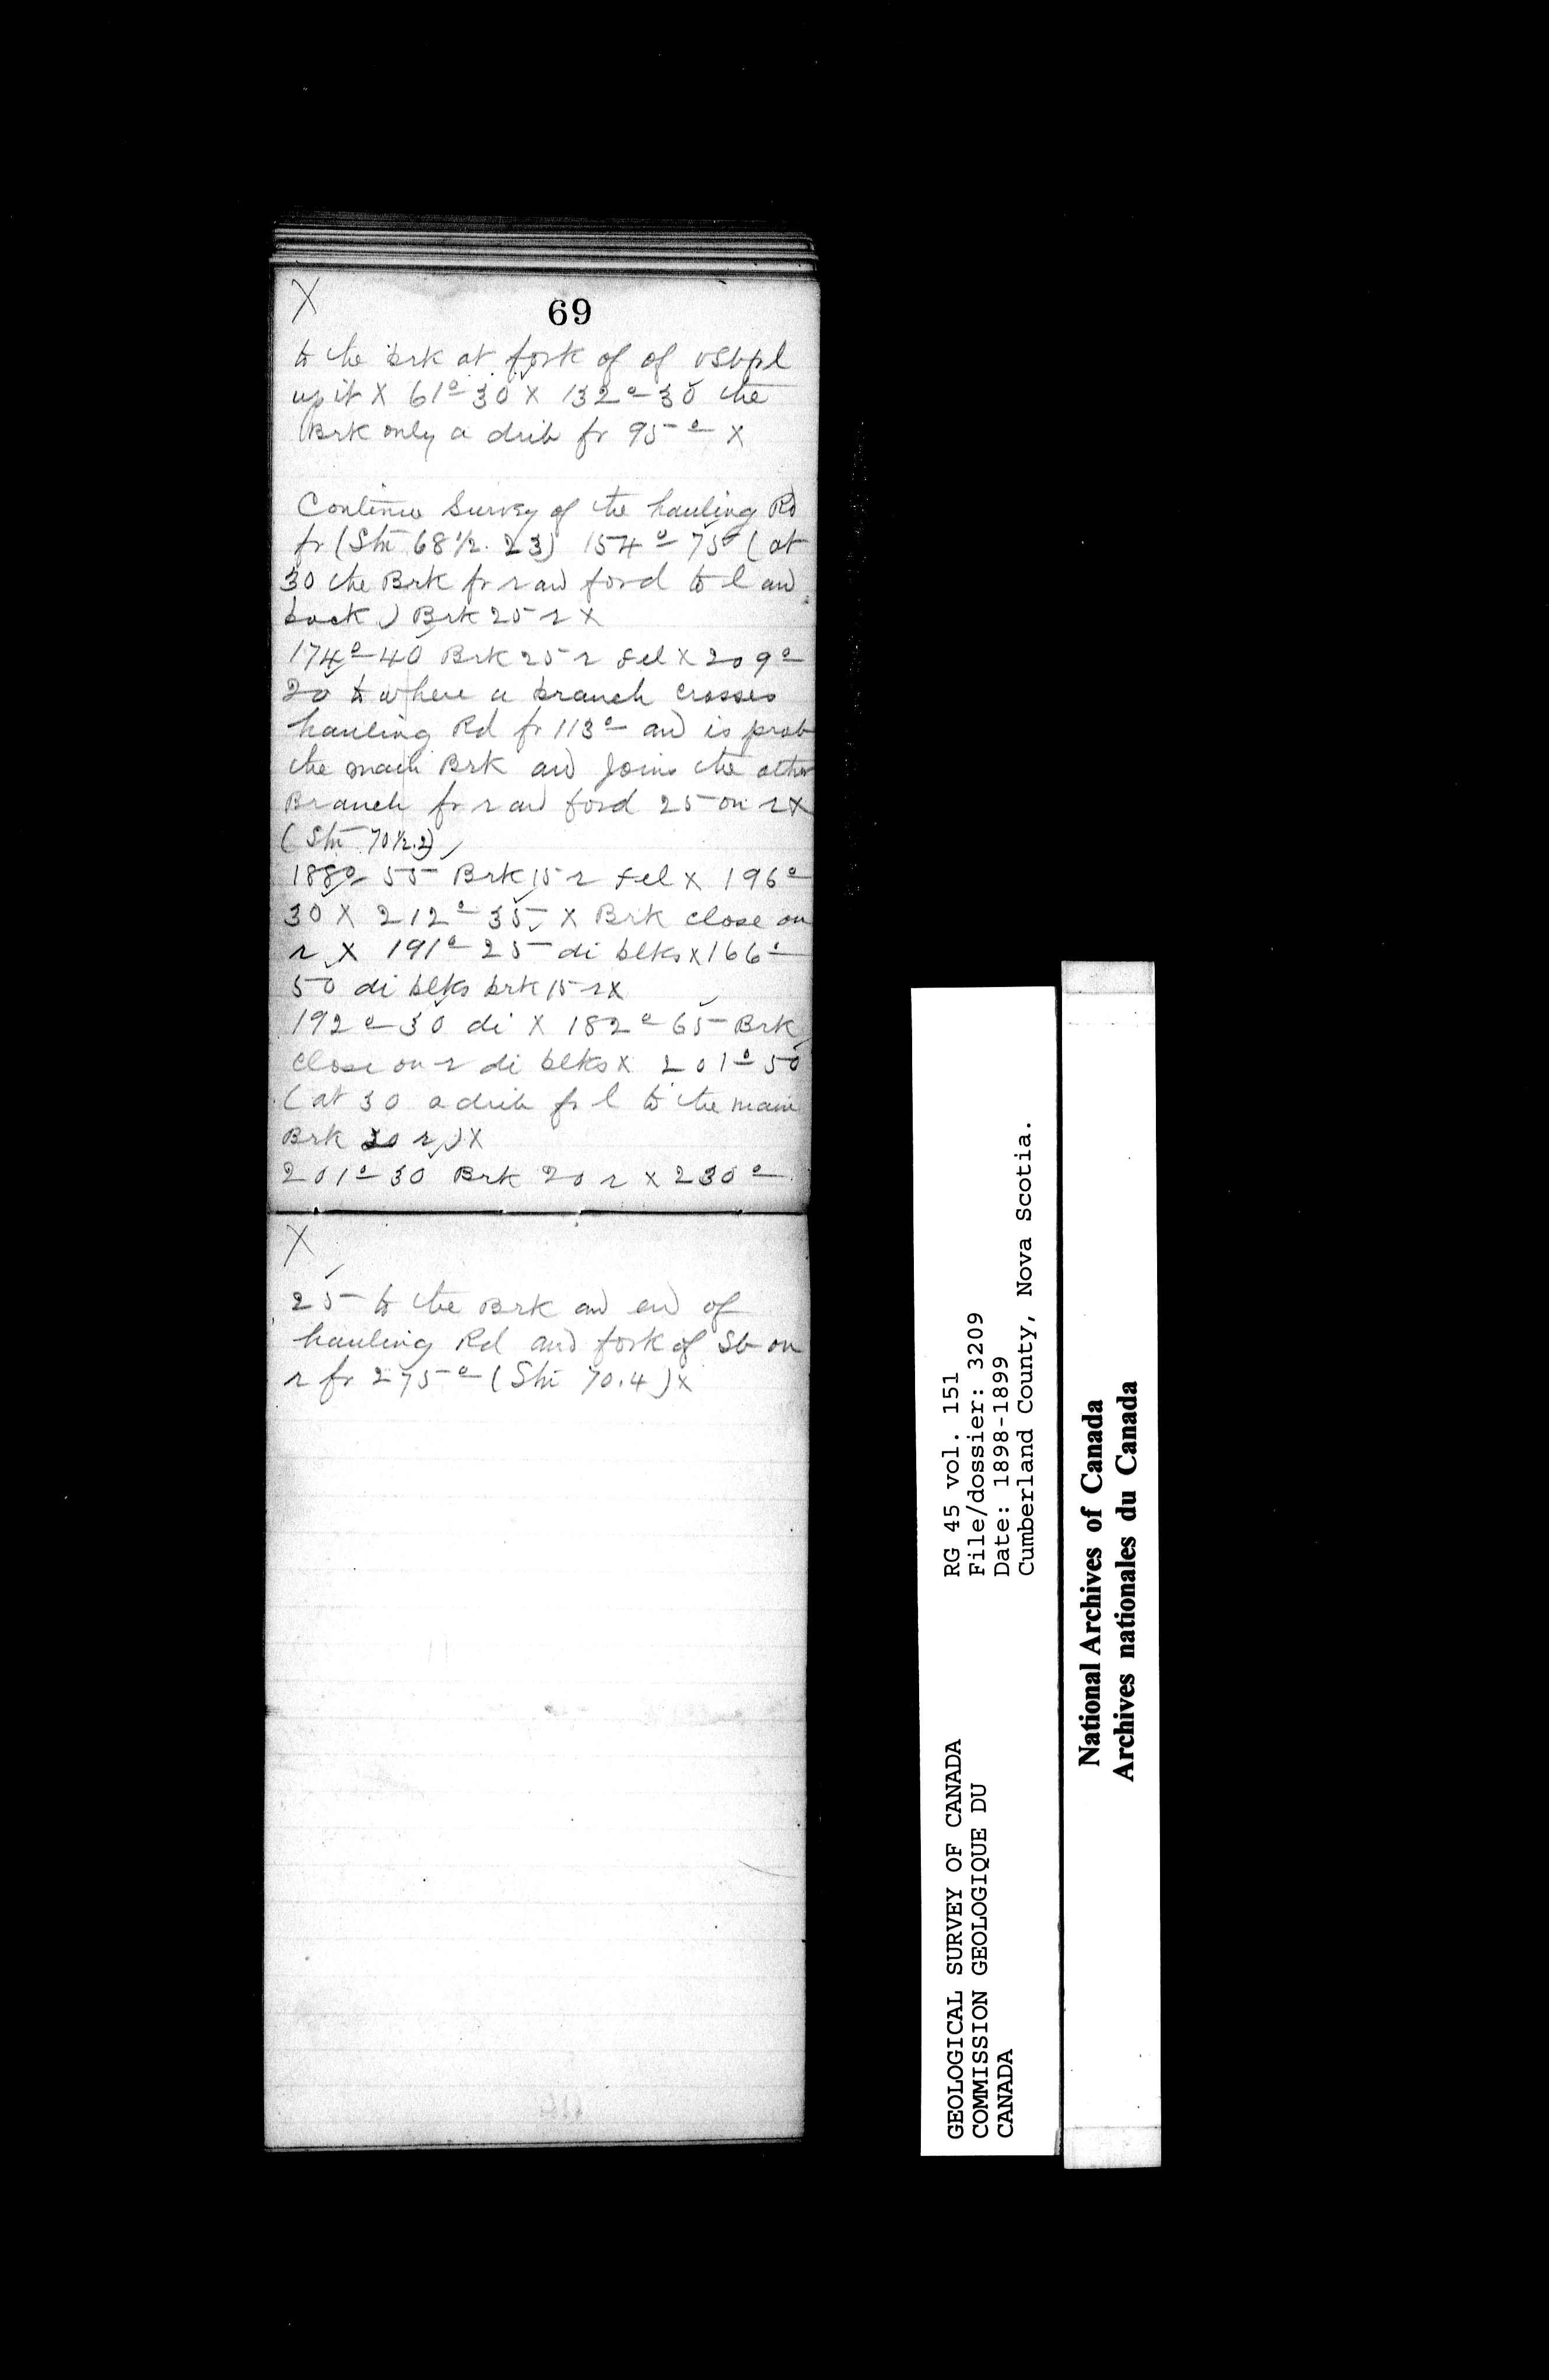 X
69
to the brk at fork of of vSbfl
up it X 61°-30 X 132°-30 the
Brk only a drib fr 95° X
Continue Survey of the hauling Rd
fr (Stn 68½.23) 154°-75 (at
30 the Brk fr r and ford to l and
back) Brk 25 r X
174°-40 Brk 25 r Fel X 209°-
20 to where a branch crosses
hauling Rd fr 113° and is prob
the main Brk and Joins the other
Branch fr r and ford 25 on r X
(Stn 70½.2)
188°-55 Brk 15 r Fel X 196°-
30 X 212°-35 X Brk close on
r X 191°-25 di blks X 166°-
50 di blks brk 15 r X
192°-30 di X 182°-65 Brk
close on r di blks X 201°-50
(at 30 a drib fr l to the main
Brk 30 r) X
201°-30 Brk 20 r X 230°-
X
25 to the Brk and end of
hauling Rd and fork of Sb on
r fr 275° (Stn 70.4) X
RG 45 vol. 151
File/dossier: 3209
Date: 1898-1899
Cumberland County, Nova Scotia.
GEOLOGICAL SURVEY OF CANADA
COMMISSION GEOLOGIQUE DU
CANADA
National Archives of Canada
Archives nationales du Canada